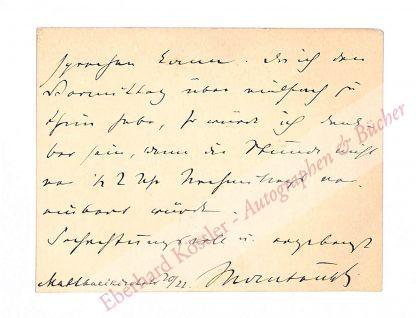 sprechen kann. Da ich den
Vormittag über vielfach zu
thun habe, so würde ich dank-
bar sein, wenn die Stunde nicht
vor ½ 2 Uhr Nachmittags ver-
einbart würde.
Hochachtungsvoll u. ergebenst
20/22
Eberhard Köstler - Autographen & Bücher